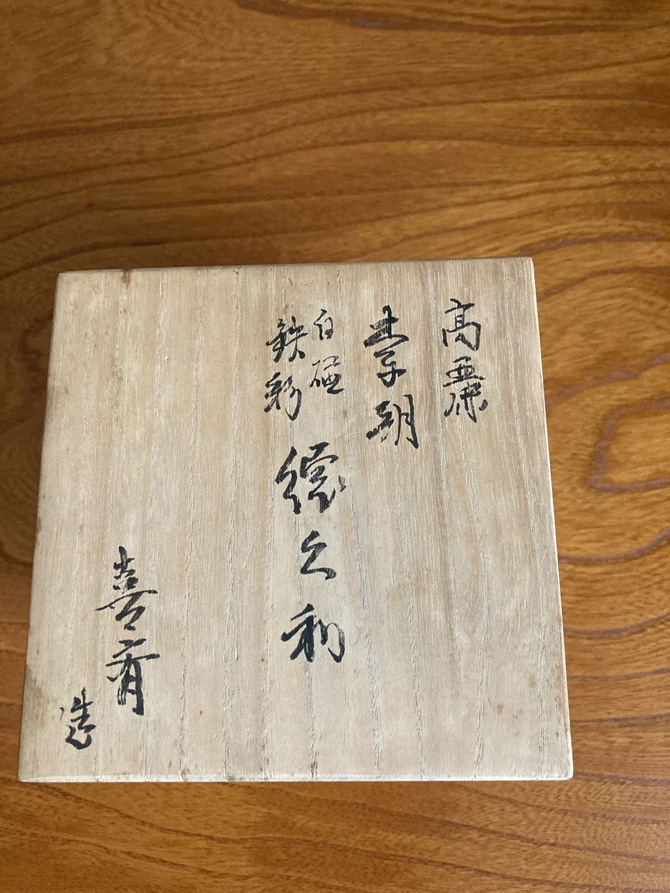 高麗
李朝
白磁
鉄彩
徳久利
喜斎
造